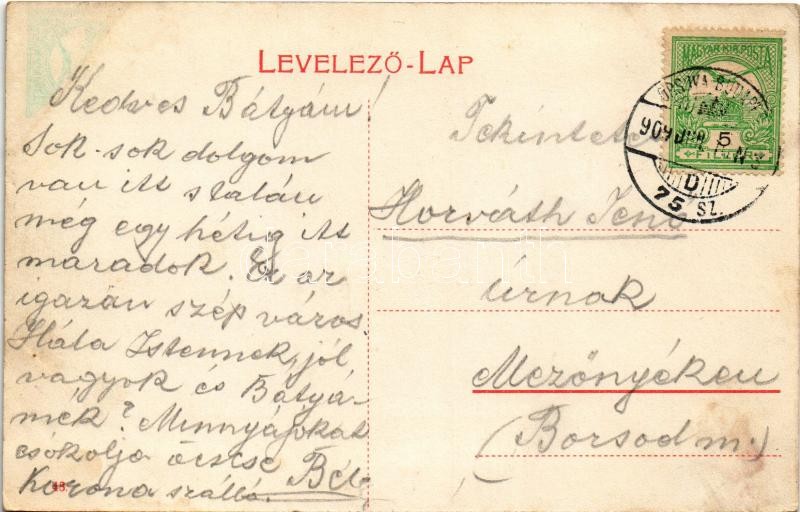 LEVELEZŐ-LAP
Kedves Bátyám
Sok-sok dolgom
van itt s talán
még egy hétig itt
maradok. Ez az
igazán szép város
Hála Istennek, jól
vagyok és Bátyá-
mék? Minnyájokat
csókolja öccse Bél
Korona szálló.
48.
MAGYAR KIR. POSTA
5
FILLÉR
ORSOVA-BUDAPEST
909
D
75 SZ.
Tekintetes
Horváth Jenő
úrnak
Mezőnyéken
(Borsod m.)